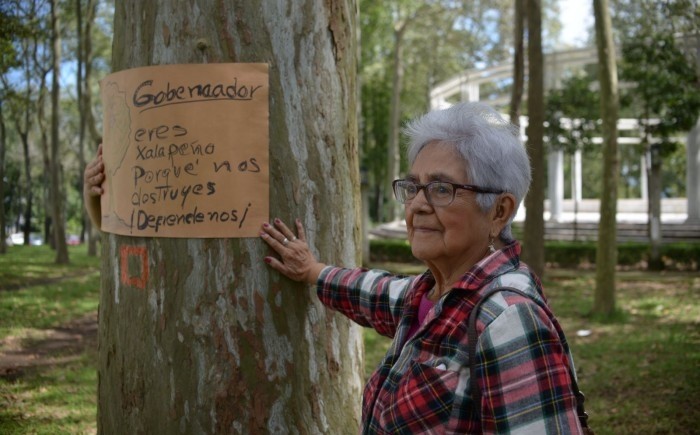 Gobernador
eres
Xalapeño
Porqué nos
destruyes
¡Deprendenos!